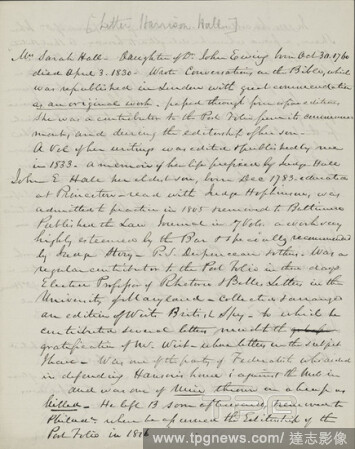 [Letter Harrison Hall]
Mrs Sarah Hall - Daughter of Dr. John Ewing born Oct 30. 1760
died April 3. 1830 - Wrote Conversations on the Bible, which
was republished in London with great commendation
as an original work - passed through four or five editions
She was a contributor to the Port Folio from its commence
ment, and during the editorship of her son -
A Vol of her writings was edited & published by me
in 1833. A memoir of her life prefixed by Judge Hall
John E Hall her eldest son, born Dec 1783. educated
at Princeton - read with Judge Hopkinson, was
admitted to practice in 1805 removed to Baltimore
Published the Law Journal in 6 Vols. a work very
highly esteemed by the Bar & specially recommended
by Judge Story - P.S. Duponceau & others. Was a
regular contributor to the Port Folio in those days
Elected Professor of Rhetoric & Belles Letters in the
University of Maryland - Collected & arranged
an edition of Wirt's British Spy - to which he
contributed several letters much to the
gratification of Mr. Wirt whose letter on the subject
I have - Was one of the party of Federalists who assisted
in defending Hanson's house against the mob in
and was one of nine thrown in a heap as
killed - He left B soon afterwards & removed to
Philada when he assumed the Editorship of the
Port Folio in
www.tpgnews.com/達志影像